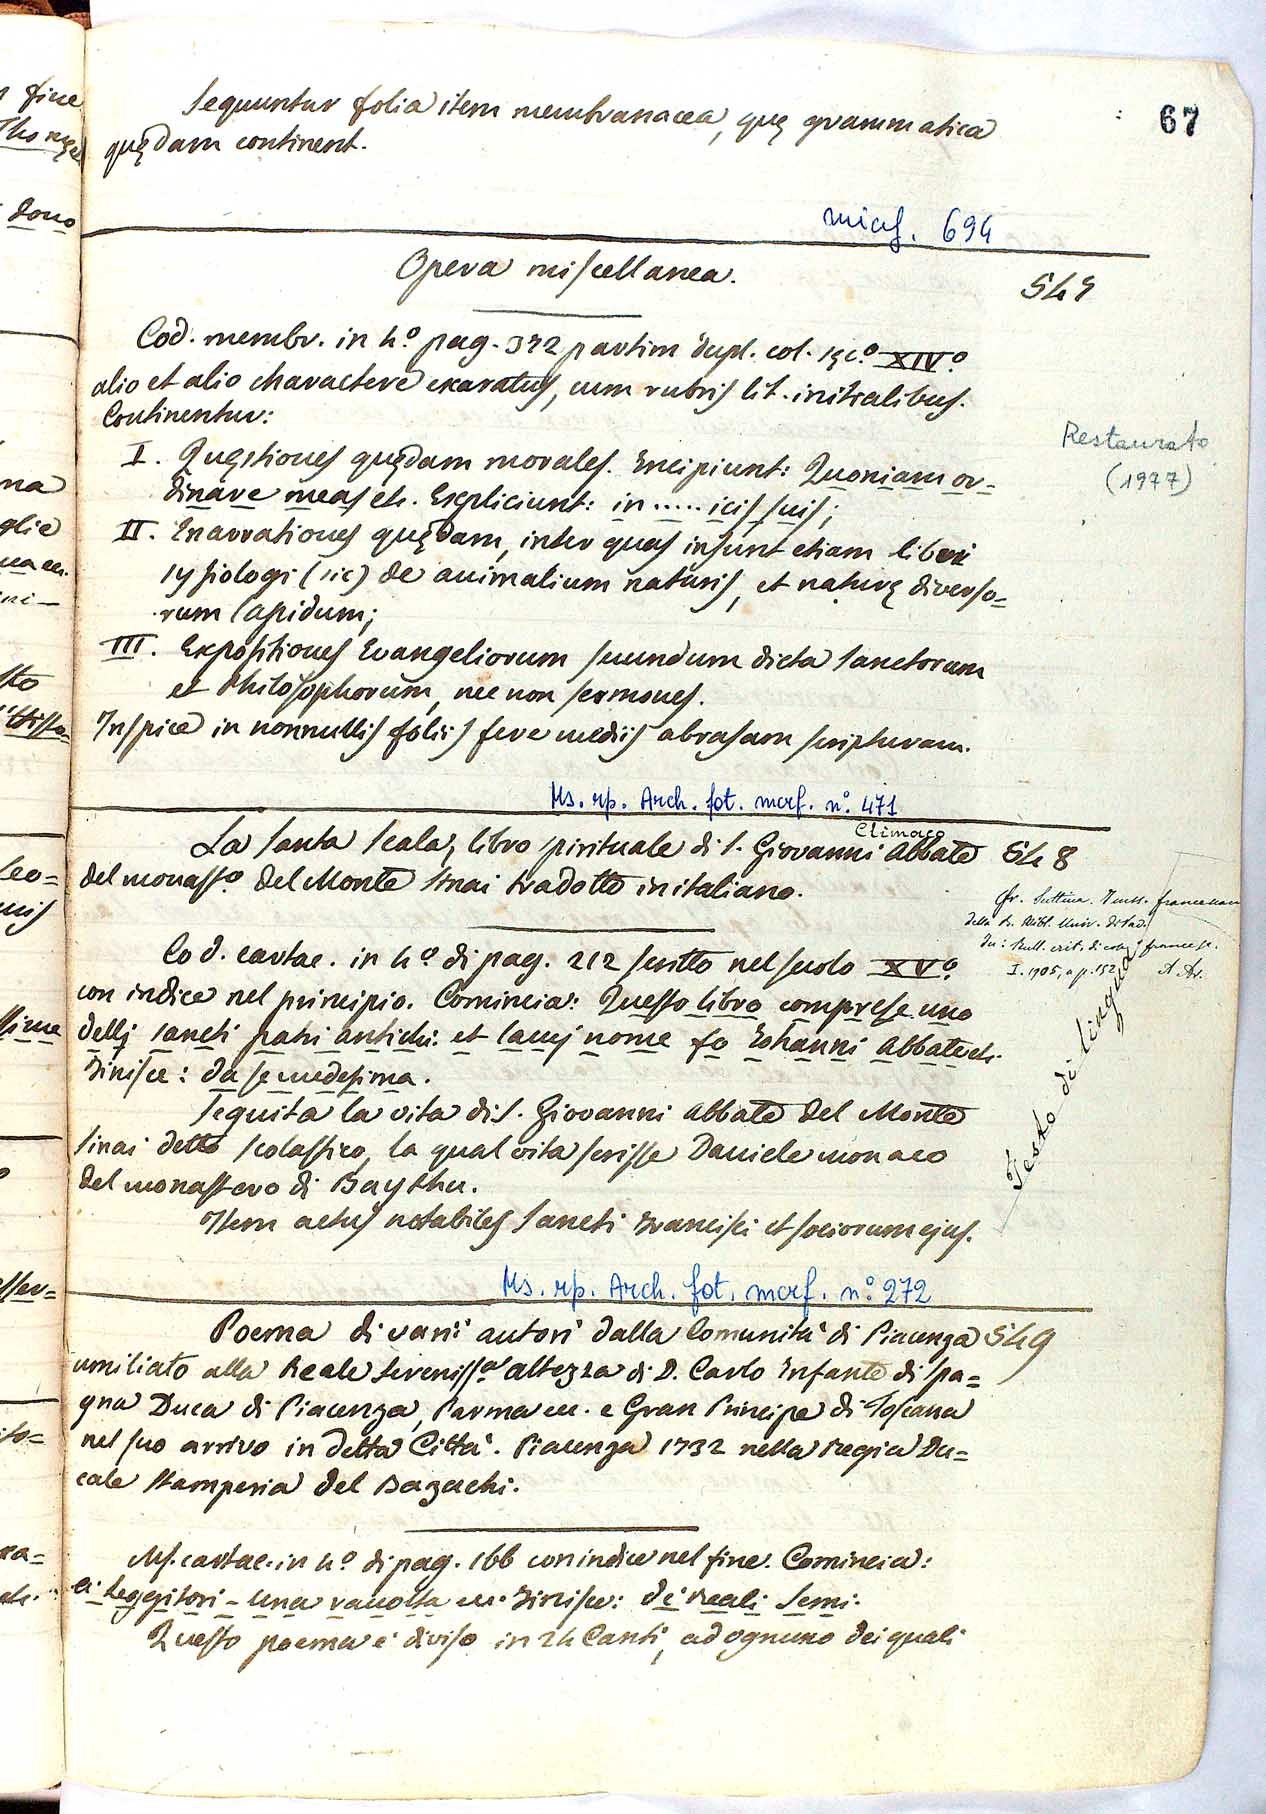 67
Sequuntur folia item membranacea, quę grammatica
quędam continent.
micf. 694
Opera miscellanea. 547
Cod. membr. in 4.º pag. 372 partim dupl. col. sęc.º XIVº
alio et alio charactere exaratus, cum rubris lit. initialibus.
Continentur:
Restaurato
(1977)
I. Quęstiones quędam morales. Incipiunt: Quoniam or-
dinare meas etc. Expliciunt: in ..... icis suis;
II. Enarrationes quędam, inter quas insunt etiam libri
sysiologi (sic) de animalium naturis, et naturę diverso=
rum lapidum;
III. Expositiones Evangeliorum secundum dicta Sanctorum
et Philosophorum, nec non sermones.
Inspice in nonnullis foliis fere mediis abrasam scripturam.
Ms. rip. Arch. fot. mcrf. n.º 471
Climaco
La Santa Scala, libro spirituale di S. Giovanni Abbate 548
del monastº del Monte Sinai tradotto in italiano.
Cfr. Suttina. I mss. francescani
della R. Bibl. Univ. di Pad.
In: Bull. crit. di cose francesc.
I. 1905, a p. 152
Cod. cartac. in 4.º di pag. 212 scritto nel secolo XVº
con indice nel principio. Comincia: Questo libro comprese uno
delli sancti patri antichi: et lo cuj nome fo Iohanni Abbate etc.
Finisce: da se medesima.
Testo di lingua
Seguita la vita di S. Giovanni Abbate del Monte
Sinai detto scolastico, la qual vita scrisse Daniele monaco
del monastero di Baythu.
Item actus notabiles Sancti Francisci et sociorum ejus.
Ms. rip. Arch. fot. mcrf. n.º 272
Poema di varii autori dalla Comunità di Piacenza 549
umiliato alla Reale Sereniss.ª Altezza di D. Carlo Infante di Spa=
gna Duca di Piacenza, Parma ec. e Gran Principe di Toscana
nel suo arrivo in detta Città. Piacenza 1732 nella Regia Du=
cale Stamperia del Bazachi.
Ms. cartac. in 4º di pag. 166 con indice nel fine. Comincia:
ai Leggitori - Una racolta ec. Finisce: de' Reali Semi.
Questo poema è diviso in 24 Canti, ad ognuno dei quali